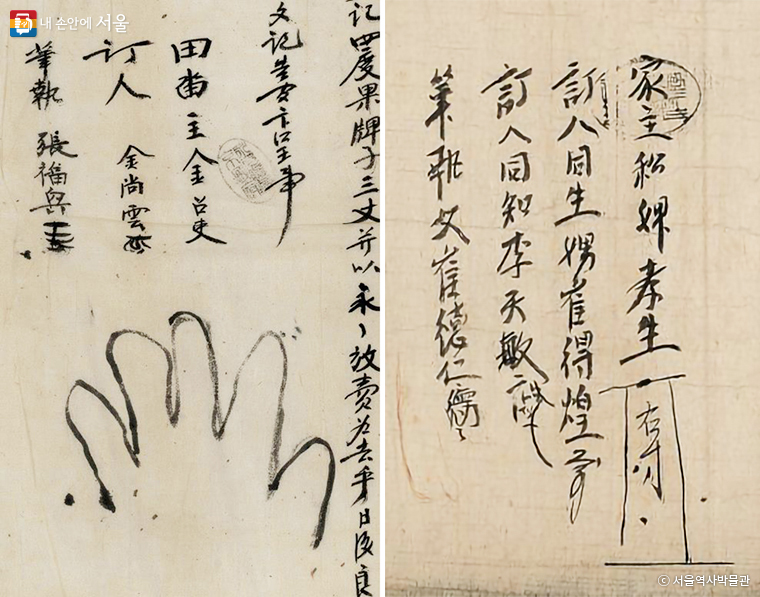 내 손안에 서울
記四度果牌子三丈并以永〃放賣為去乎日後良
文記告卞呈事
田畓主金召史
訂人 金尚雲
筆執 張福興
家主私婢孝生 右寸
訂人同生娚崔得煌
訂人同知李天敏
筆執父崔德仁
ⓒ 서울역사박물관